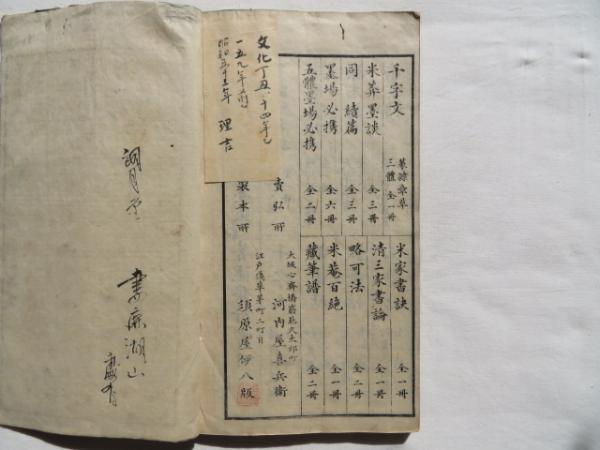 千字文 三體 全一冊
米葊墨談 全三冊
同 續篇 全三冊
墨場必携 全六冊
五體墨場必携 全二冊
米家書訣 全一冊
清三家書論 全一冊
略可法 全二冊
米菴百絶 全一冊
藏筆譜 全二冊
賣弘所
大坂心齋橋筋北久太郎町
河内屋喜兵衛
製本所
江戸淺草茅町二町目
須原屋伊八版
文化丁丑、十四年也
一五九年前
昭和五十一年 理吉
湖山